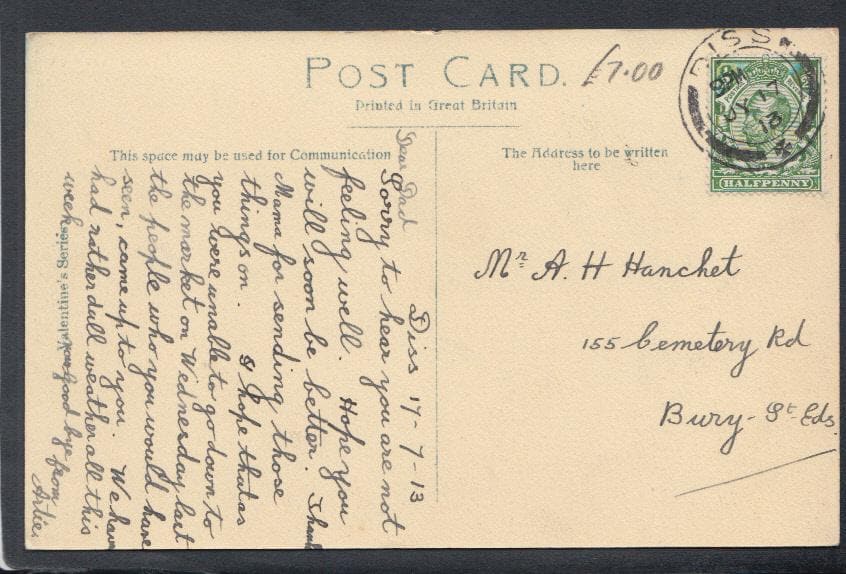 POST CARD.
£7.00
Printed in Great Britain
This space may be used for Communication
The Address to be written
here
DISS
8 PM
JY 17
13
HALFPENNY
Diss 17-7-13
Dear Dad
Sorry to hear you are not
feeling well. Hope you
will soon be better. Thank
Mama for sending those
things on. I hope that as
you were unable to go down to
the market on Wednesday last
the people who you would have
seen, came up to you. We have
had rather dull weather all this
week. good bye from
Artie.
Valentine's Series
Mr A. H Hanchet
155 Cemetery Rd
Bury-St Eds